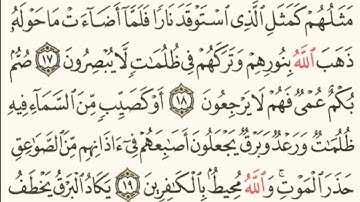 مَثَلُهُمْ كَمَثَلِ ٱلَّذِى ٱسْتَوْقَدَ نَارًا فَلَمَّآ أَضَآءَتْ مَا حَوْلَهُۥ
ذَهَبَ ٱللَّهُ بِنُورِهِمْ وَتَرَكَهُمْ فِى ظُلُمَـٰتٍ لَّا يُبْصِرُونَ ١٧ صُمٌّۢ
بُكْمٌ عُمْىٌ فَهُمْ لَا يَرْجِعُونَ ١٨ أَوْ كَصَيِّبٍ مِّنَ ٱلسَّمَآءِ فِيهِ
ظُلُمَـٰتٌ وَرَعْدٌ وَبَرْقٌ يَجْعَلُونَ أَصَـٰبِعَهُمْ فِىٓ ءَاذَانِهِم مِّنَ ٱلصَّوَٰعِقِ
حَذَرَ ٱلْمَوْتِ ۚ وَٱللَّهُ مُحِيطٌۢ بِٱلْكَـٰفِرِينَ ١٩ يَكَادُ ٱلْبَرْقُ يَخْطَفُ